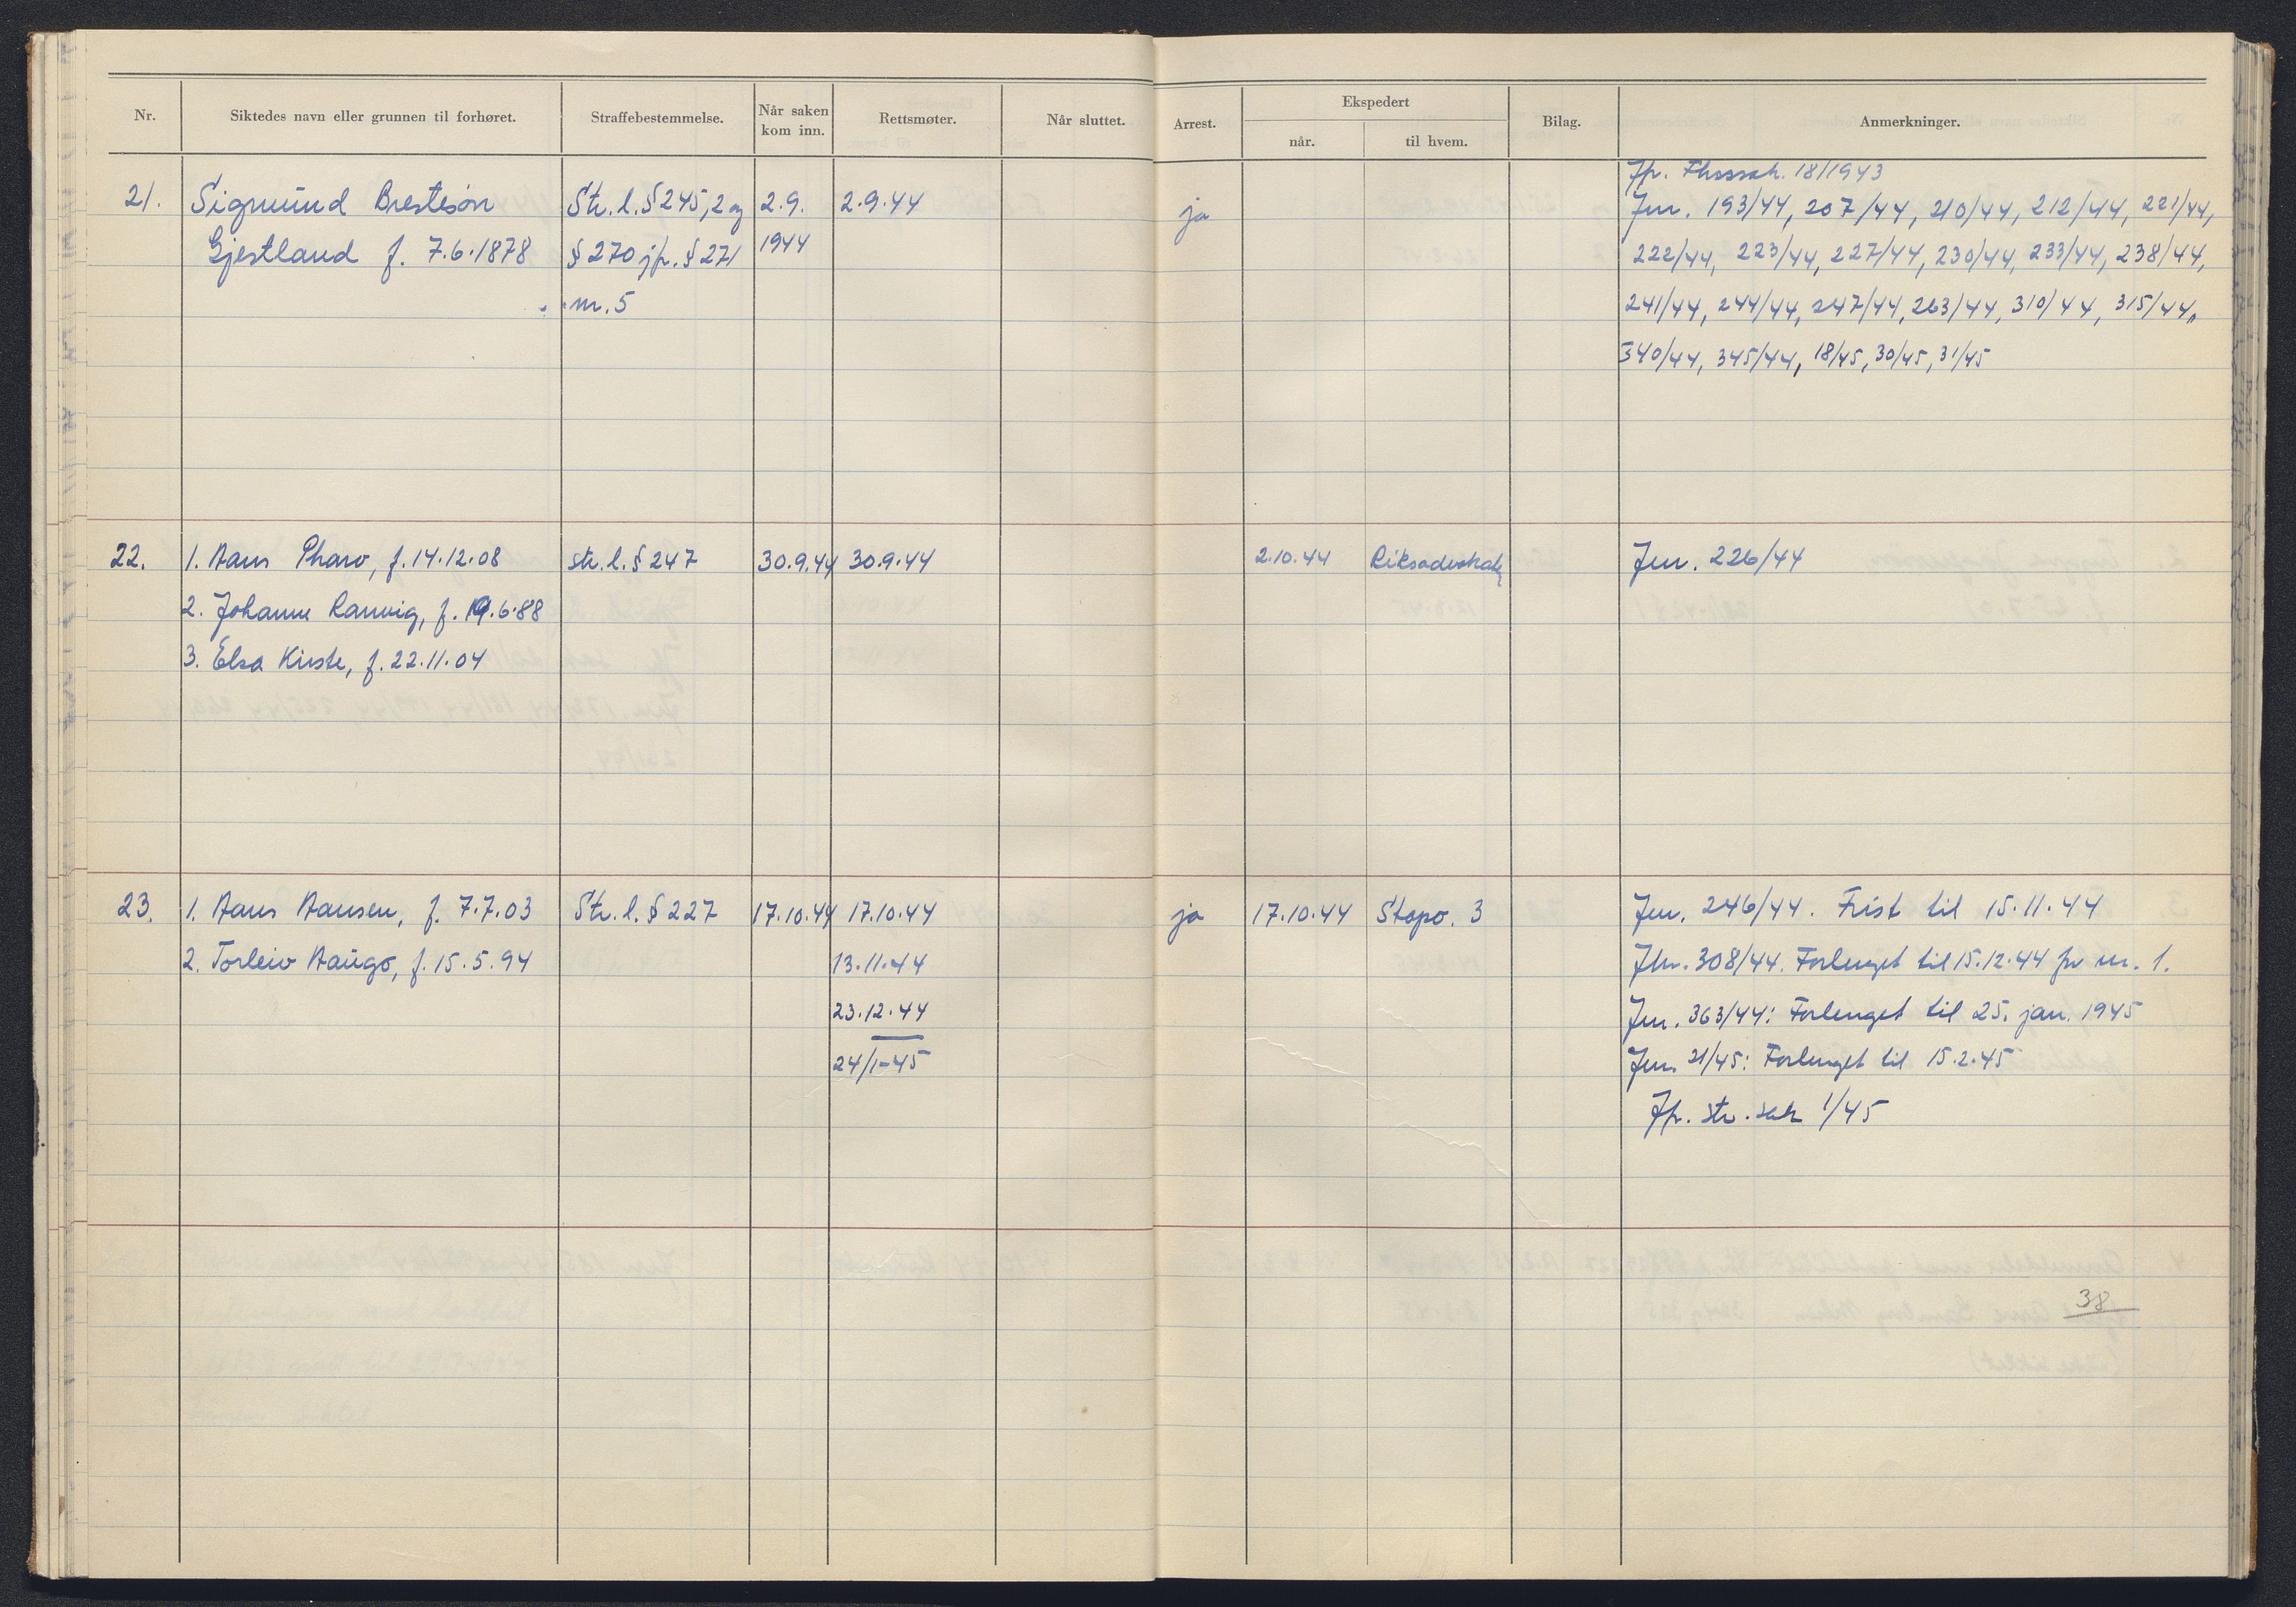 Nr. Siktedes navn eller grunnen til forhøret. Straffebestemmelse. Når saken kom inn. Rettsmøter. Når sluttet. Arrest. Ekspedert når. til hvem. Bilag. Anmerkninger.
Jfr. Fhssak. 18/1943
21. Sigmund Brestesøn Str. l. § 245, 2 og 2.9. 2.9.44 ja Jnr. 193/44, 207/44, 210/44, 212/44, 221/44,
Gjestland f. 7.6.1878 § 270 jfr. § 271 1944 222/44, 223/44, 227/44, 230/44, 233/44, 238/44,
nr. 5 241/44, 244/44, 247/44, 263/44, 310/44, 315/44,
340/44, 345/44, 18/45, 30/45, 31/45
22. 1. Hans Pharo, f. 14.12.08 str. l. § 247 30.9.44 30.9.44 2.10.44 Riksadvokaten Jnr. 226/44
2. Johanne Ranvig, f. 19.6.88
3. Elsa Kirste, f. 22.11.04
23. 1. Hans Hansen, f. 7.7.03 Str. l. § 227 17.10.44 17.10.44 ja 17.10.44 Stapo. 3 Jnr. 246/44. Frist til 15.11.44
2. Torleiv Haugo, f. 15.5.94 13.11.44 Jnr. 308/44. Forlenget til 15.12.44 for nr. 1.
23.12.44 Jnr. 363/44: Forlenget til 25. jan. 1945
24/1-45 Jnr. 21/45: Forlenget til 15.2.45
Jfr. str. sak 1/45
38